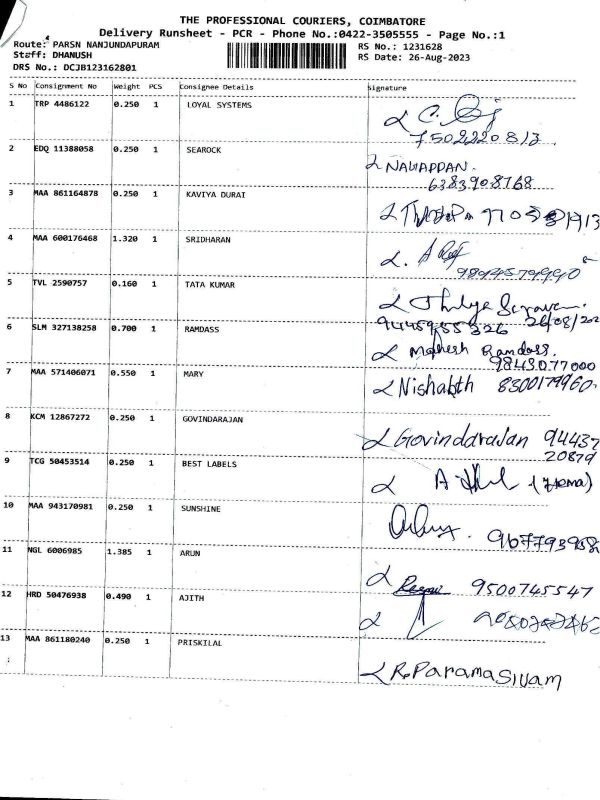 THE PROFESSIONAL COURIERS, COIMBATORE
Delivery Runsheet - PCR - Phone No.:0422-3505555 - Page No.:1
Route: PARSN NANJUNDAPURAM RS No.: 1231628
Staff: DHANUSH RS Date: 26-Aug-2023
DRS No.: DCJB123162801
S No Consignment No Weight PCS Consignee Details Signature
1 TRP 4486122 0.250 1 LOYAL SYSTEMS
7502220813
2 EDQ 11388058 0.250 1 SEAROCK
6383908768
3 MAA 861164878 0.250 1 KAVIYA DURAI
4 MAA 600176468 1.320 1 SRIDHARAN
5 TVL 2590757 0.160 1 TATA KUMAR
6 SLM 327138258 0.700 1 RAMDASS
Mahesh Ramdoss.
9843077000
7 MAA 571406071 0.550 1 MARY Nishabth 8300179960.
8 KCM 12867272 0.250 1 GOVINDARAJAN
Govindarajan 94437
20879
9 TCG 50453514 0.250 1 BEST LABELS
10 MAA 943170981 0.250 1 SUNSHINE
11 NGL 6006985 1.385 1 ARUN
9500745547
12 HRD 50476938 0.490 1 AJITH
13 MAA 861180240 0.250 1 PRISKILAL
R. ParamaSivam